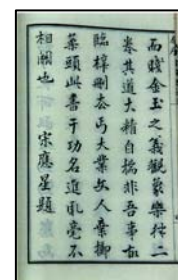 而賤金玉之義觀象樂律二
卷其道太精自揣非吾事故
臨梓刪去丐大業文人棄擲
案頭此書于功名進取毫不
相關也　宋應星題